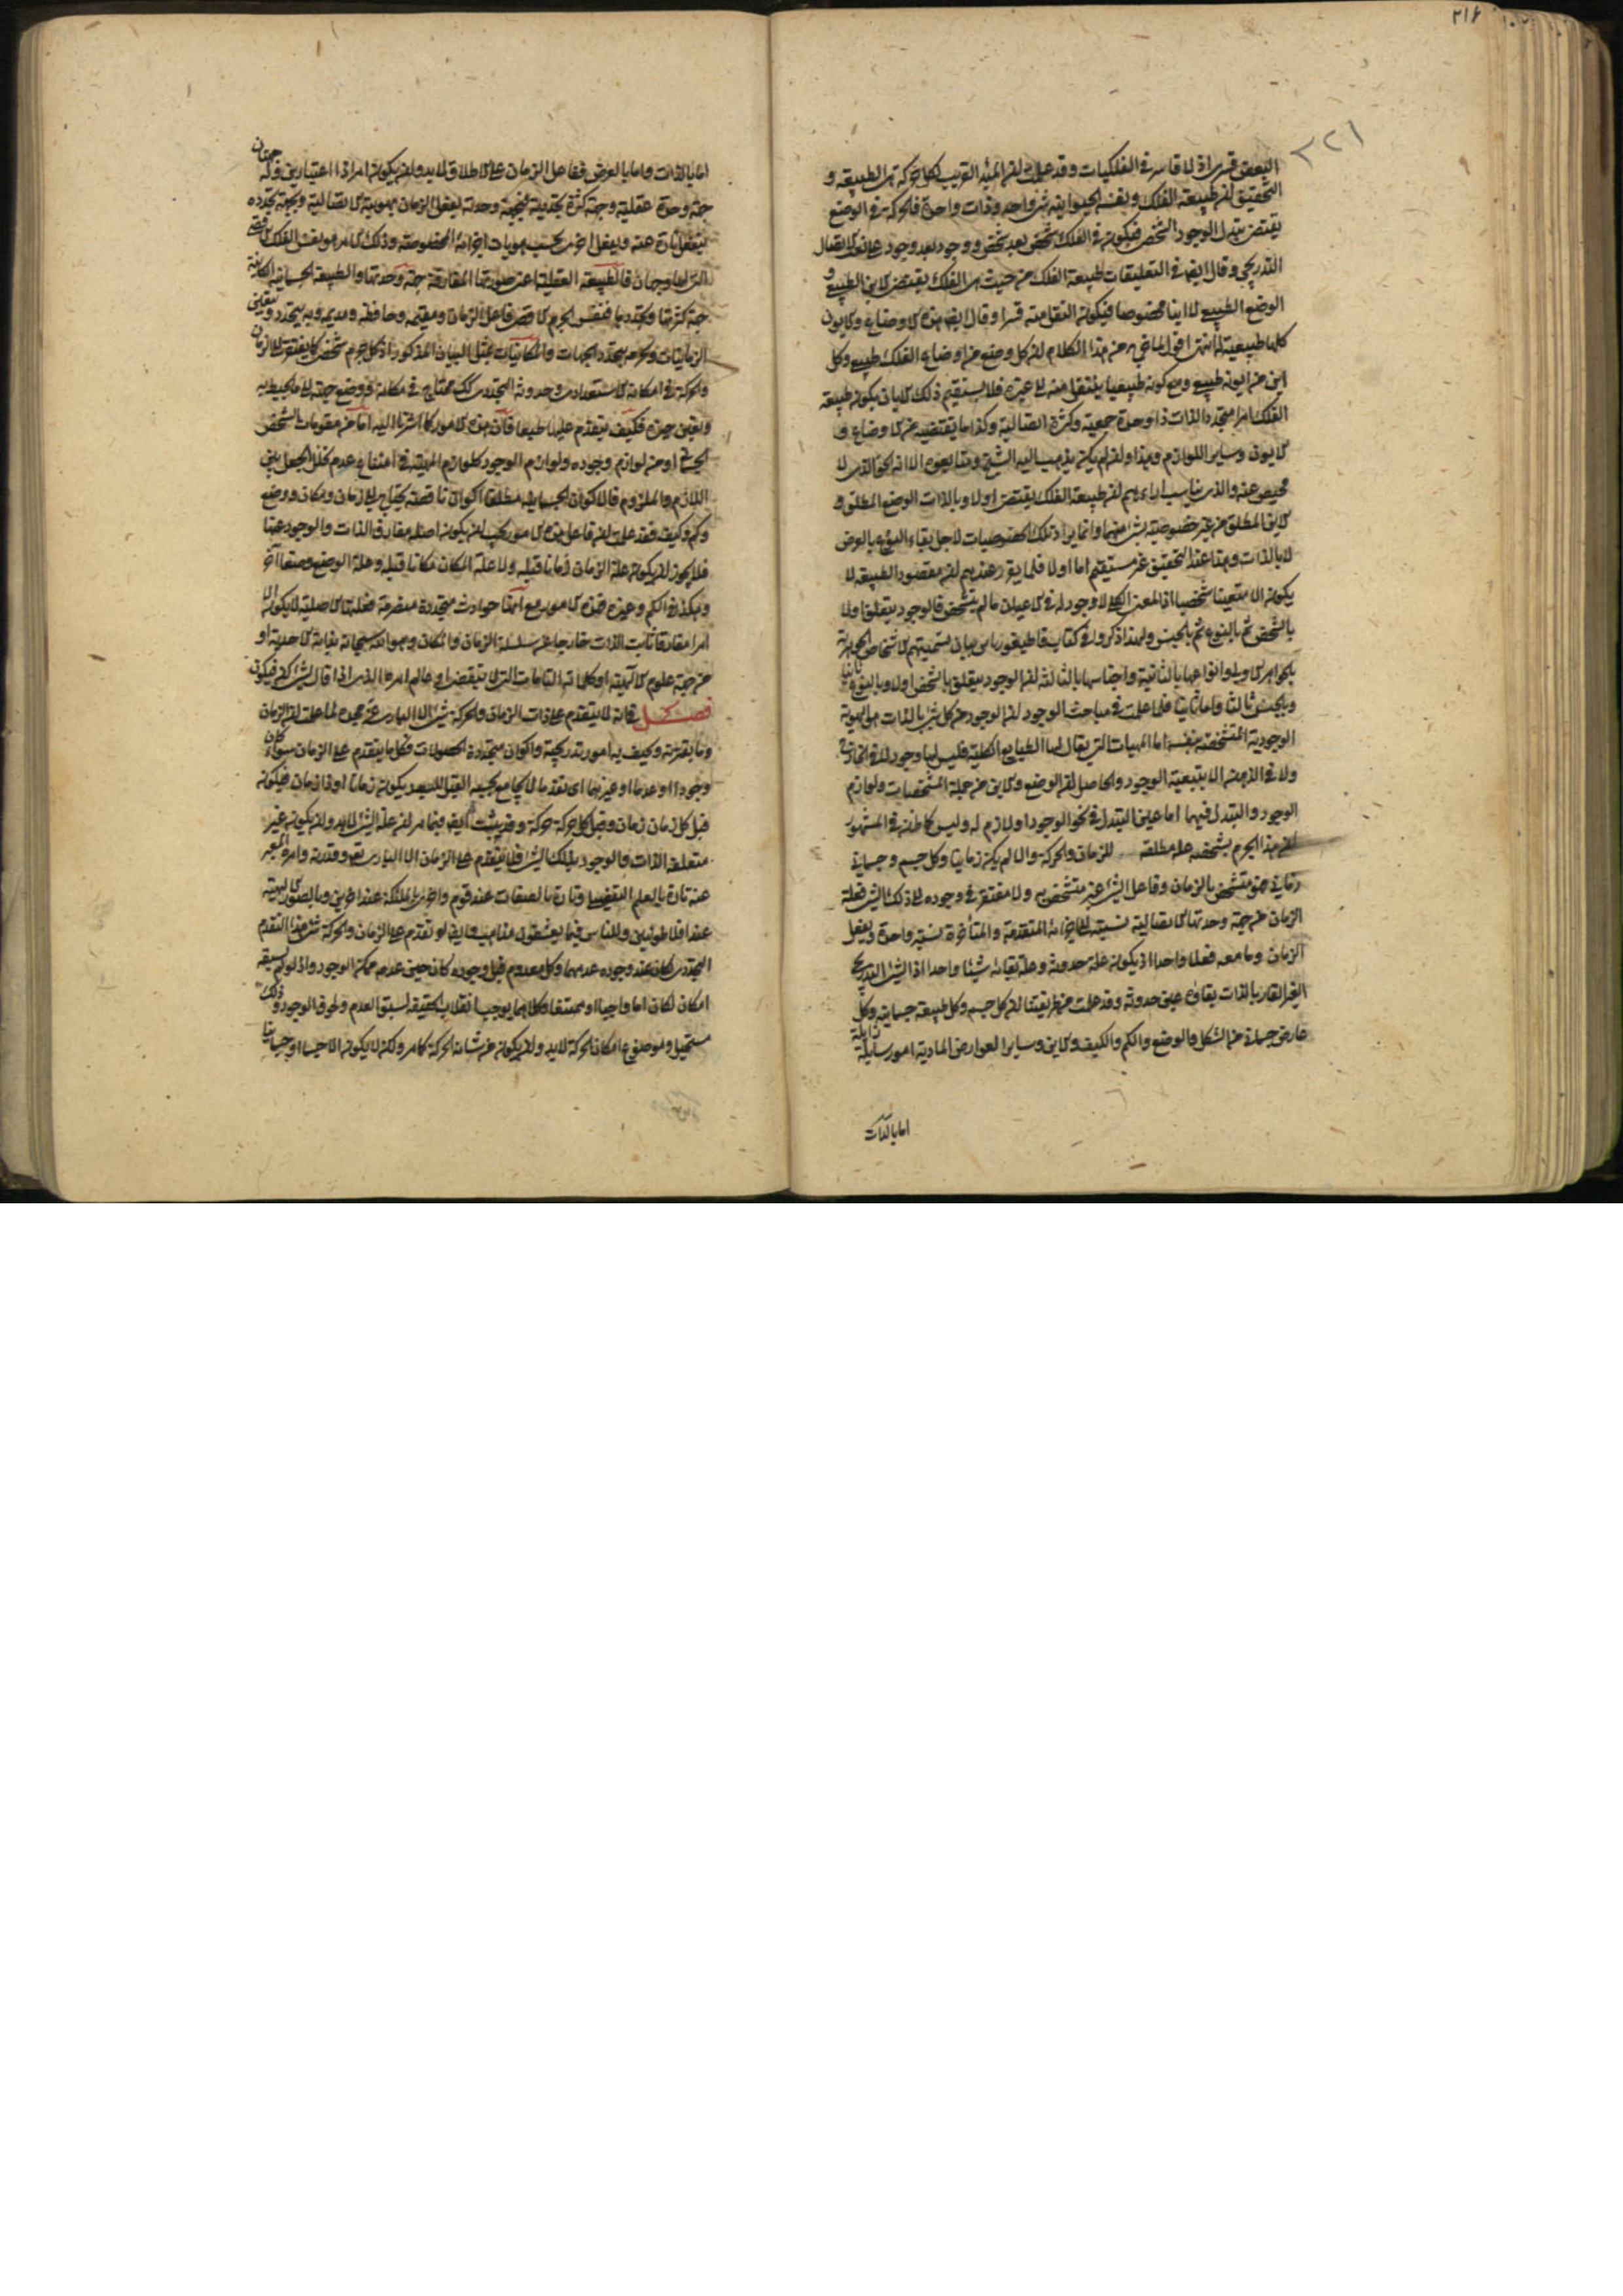 ٢١۶
٣٢١
البعض قسرا اذ لا قاسر فى الفلكيات وقد علمت ان المبدء القريب لكل حركة هى الطبيعه و
التحقيق ان طبيعة الفلك ونفسه الحيوانيه شئ واحد وذات واحدة فالحركة فى الوضع
يقتضى تبدل الوجود الشخصى فيكون فى الفلك شخص بعد شخص ووجود بعد وجود على نعت الاتصال
التدريجى وقال ايضا فى التعليقات طبيعة الفلك من حيث هى الفلك يقتضى الاين الطبيعى و
الوضع الطبيعى لا اينا مخصوصا فيكون النقل منه قسرا وقال ايضا هذه الاوضاع والايون
كلها طبيعية له انتهى اقول الماضى من هذا الكلام ان كل وضع من اوضاع الفلك طبيعى وكل
اين من ايونه طبيعى ومع كونه طبيعيا ينتقل منه الى غيره فلا يستقيم ذلك الا بان يكون طبيعة
الفلك امرا متجدد الذات ذا وحدة جمعية وكثرة اتصالية وكذا ما يقتضيه من الاوضاع و
الايون وساير اللوازم وهذا وان لم يكن يذهب اليه الشيخ ومتابعوه الا انه الحق الذى لا
محيص عنه والذى يناسب اراءهم ان طبيعة الفلك يقتضى اولا وبالذات الوضع المطلق و
الاين المطلق من غير خصوصية بشئ منهما وانما يراد تلك الخصوصيات لاجل بقاء النوع بالعرض
لا بالذات وهذا عند التحقيق غير مستقيم اما اولا فلما يقرر عندهم ان مقصود الطبيعة لا
يكون الا متعينا شخصيا اذ المعنى الكلى لا وجود له فى الاعيان ما لم يتشخص فالوجود يتعلق اولا
بالشخص ثم بالنوع ثم بالجنس ولهذا ذكروا فى كتاب قاطيغورياس بيان تسميتهم الاشخاص الجوهرية
بالجواهر الاولى وانواعها بالثانية واجناسها بالثالثة ان الوجود يتعلق بالشخص اولا وبالنوع ثانيا
وبالجنس ثالثا واما ثانيا فلما علمت فى مباحث الوجود ان الوجود من كل شئ بالذات هو الهوية
الوجودية المتشخصة بنفسه اما المهيات التى يقال لها الطبايع الكلية فليس لها وجود لا فى الخارج
ولا فى الذهن الا بتبعية الوجود والحاصل ان الوضع والاين من جملة المشخصات ولوازم
الوجود والتبدل فيهما اما عين التبدل فى نحو الوجود او لازم له وليس كما ظن فى المشهور
ان هذا الجرم بشخصه علة مطلقه للزمان والحركة والا لم يكن زمانيا وكل جسم وجسمانى
زمانى فهو متشخص بالزمان وفاعل الشئ غير متشخص به ولا مفتقر فى وجوده الى ذلك الشئ فعلة
الزمان من جهة وحدتها الاتصالية نسبته الى اجزائه المتقدمة والمتأخرة نسبة واحدة ويفعل
الزمان وما معه فعلا واحدا اذ يكون علة حدوثه وعلة بقائه شيئا واحدا اذ الشئ التدريجى
الغير القار بالذات بقاؤه عين حدوثه وقد علمت من طريقتنا ان كل جسم وكل طبيعة جسمانية وكل
عارض جسمانى من الشكل والوضع والكم والكيف والاين وساير العوارض المادية امور سايلة زايلة
اما بالذات
اما بالذات واما بالعرض ففاعل الزمان على الاطلاق لا بد وان يكون امرا ذا اعتبارين وله جهتان
جهة وحدة عقلية وجهة كثرة تجددية فبجهة وحدته يفعل الزمان بهويته الاتصالية وبجهة تجدده
ينفعل تارة عنه ويفعل اخرى بحسب هويات اجزائه المخصوصة وذلك الامر هو نفس الفلك الاقصى
التى لها وجهان فالطبيعه العقلية اعنى صورتها المفارقة جهة وحدتها والطبيعة الجسمانية الكائنة
جهة كثرتها وتجددها فنفس الجرم الاقصى فاعل الزمان ومقيمه وحافظه ومديمه وبه يتجدد ويتعين
الزمانيات وبجرمه يتجدد الجهات والمكانيات بمثل البيان المذكور اذ كل جرم شخصى كما يفتقر الى الزمان
والحركة فى امكانه الاستعدادى وحدوثه التجددى كك يحتاج فى مكانه ووضع جهته الى ما يحيط به
ويعين حيزه فكيف يتقدم عليها طبعا فان هذه الامور كما اشرنا اليه اما من مقومات الشخص
الجسمى او من لوازم وجوده ولوازم الوجود كلوازم المهية فى امتناع عدم تخلل الجعل بين
اللازم والملزوم فالاكوان الجسمانيه مطلقا اكوان ناقصة يحتاج الى زمان ومكان ووضع
وكم وكيف فقد علمت ان فاعل هذه الامور يجب ان يكون اصله مفارق الذات والوجود عنها
فلا يجوز ان يكون علة الزمان زمانا قبله ولا علة المكان مكانا قبله وعلة الوضع وضعا آخر
وهكذا فى الكم وغيره فهذه الامور مع انها حوادث متجددة متصرمة فعلتها الاصلية لا يكون الا
امرا مفارقا ثابت الذات خارجا عن سلسلة الزمان والمكان وهو الله سبحانه بذاته الاحدية او
من جهة علوم الالهية او كلماته التامات التى لا ينقضى او عالم امره الذى اذا قال لشئ كن فيكون
فصل فى انه لا يتقدم على ذات الزمان والحركة شئ الا البارى عز مجده لما علمت ان الزمان
وما يقترنه وكيف به امور تدريجية واكوان متجددة الحصولات فكل ما يتقدم على الزمان سواء كان
وجودا او عدما او غيرهما اى تقدما لا يجامع بحسبه القبل للبعد يكون زمانا او ذا زمان فيكون
قبل كل زمان زمان وقبل كل حركة حركة وقد ثبت ايضا فيما مر ان علة الشئ لا بد وان يكون غير
متعلقة الذات والوجود بذلك الشئ فلا يتقدم على الزمان الا البارى تعالى وقدرته وامره المعبر
عنه تارة بالعلم التفصيلى وتارة بالصفات عند قوم واخرى بالملئكة عند اخرين وبالصور الالهية
عند افلاطونيين وللناس فيما يعشقون مذاهب وايضا لو تقدم على الزمان والحركة شئ هذا التقدم
التجددى لكان عند وجوده عدمهما وكل معدوم قبل وجوده كان حين عدمه ممكن الوجود واذ لو لم يسبقه
امكان لكان اما واجبا او ممتنعا وكلاهما يوجب انقلاب الحقيقه لسبق العدم ولحوق الوجود وذلك
مستحيل وموضوع امكان الحركة لا بد وان يكون من شانه الحركة كما مر ولكن لا يكون الا جسما او جسمانيا